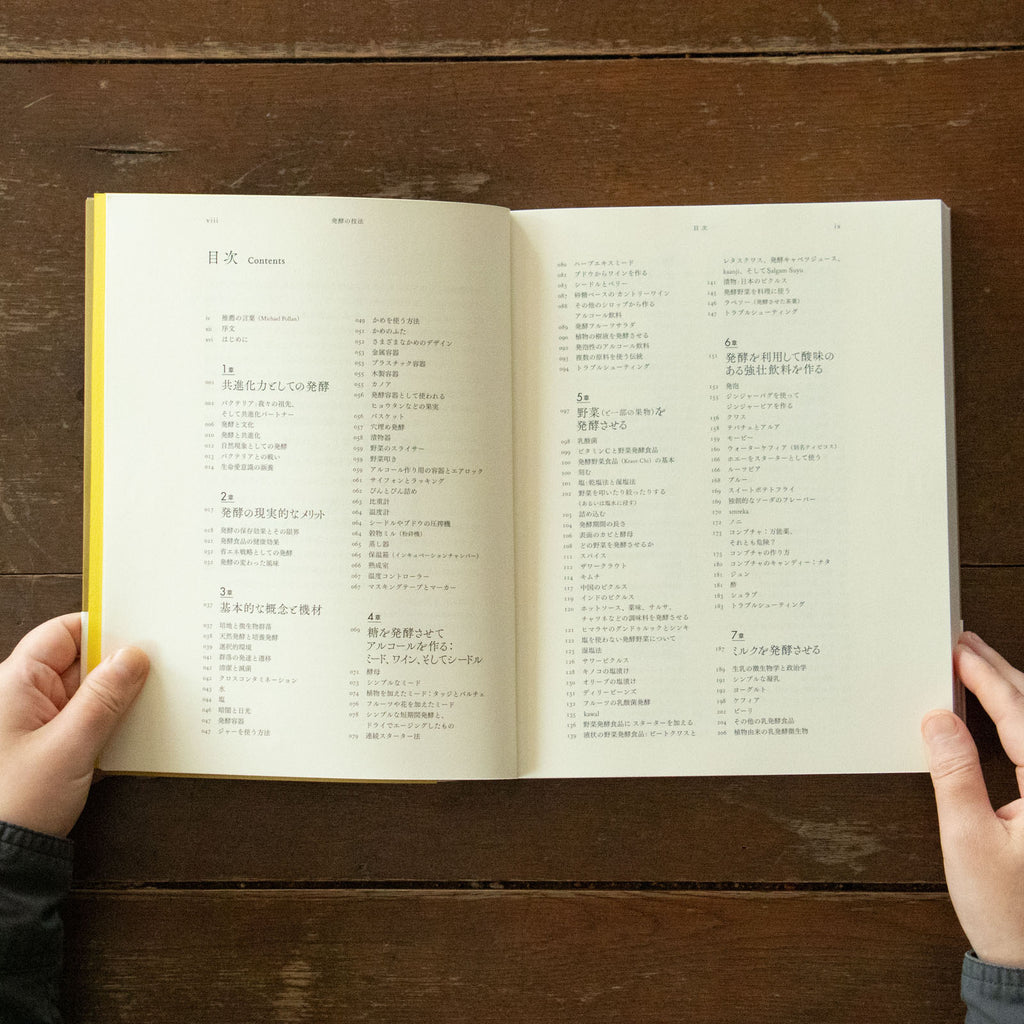 viii
発酵の技法
目次 Contents
iv 推薦の言葉(Michael Pollan)
xii 序文
xvi はじめに
1章
001 共進化力としての発酵
002 バクテリア:我々の祖先、
そして共進化パートナー
006 発酵と文化
010 発酵と共進化
012 自然現象としての発酵
013 バクテリアとの戦い
014 生命愛意識の涵養
2章
017 発酵の現実的なメリット
018 発酵の保存効果とその限界
021 発酵食品の健康効果
031 省エネ戦略としての発酵
032 発酵の変わった風味
3章
037 基本的な概念と機材
037 培地と微生物群落
038 天然発酵と培養発酵
039 選択的環境
041 群落の発達と遷移
041 清潔と滅菌
042 クロスコンタミネーション
043 水
044 塩
046 暗闇と日光
047 発酵容器
047 ジャーを使う方法
049 かめを使う方法
051 かめのふた
052 さまざまなかめのデザイン
053 金属容器
053 プラスチック容器
055 木製容器
055 カノア
056 発酵容器として使われる
ヒョウタンなどの果実
056 バスケット
057 穴埋め発酵
058 漬物器
059 野菜のスライサー
059 野菜叩き
059 アルコール作り用の容器とエアロック
061 サイフォンとラッキング
062 びんとびん詰め
063 比重計
064 温度計
064 シードルやブドウの圧搾機
064 穀物ミル(粉砕機)
065 蒸し器
065 保温箱(インキュベーションチャンバー)
066 熟成室
067 温度コントローラー
067 マスキングテープとマーカー
4章
069 糖を発酵させて
アルコールを作る:
ミード、ワイン、そしてシードル
071 酵母
073 シンプルなミード
074 植物を加えたミード:タッジとバルチェ
076 フルーツや花を加えたミード
078 シンプルな短期間発酵と、
ドライでエージングしたもの
079 連続スターター法
目次
ix
080 ハーブエキスミード
081 ブドウからワインを作る
083 シードルとペリー
087 砂糖ベースの カントリーワイン
088 その他のシロップから作る
アルコール飲料
089 発酵フルーツサラダ
090 植物の樹液を発酵させる
092 発泡性のアルコール飲料
093 複数の原料を使う伝統
094 トラブルシューティング
5章
097 野菜(と一部の果物)を
発酵させる
098 乳酸菌
099 ビタミンCと野菜発酵食品
100 発酵野菜食品(Kraut-Chi)の基本
100 刻む
101 塩:乾塩法と湿塩法
102 野菜を叩いたり絞ったりする
(あるいは塩水に浸す)
103 詰め込む
104 発酵期間の長さ
106 表面のカビと酵母
108 どの野菜を発酵させるか
111 スパイス
112 ザワークラウト
114 キムチ
117 中国のピクルス
119 インドのピクルス
120 ホットソース、薬味、サルサ、
チャツネなどの調味料を発酵させる
121 ヒマラヤのグンドゥルックとシンキ
122 塩を使わない発酵野菜について
123 湿塩法
126 サワーピクルス
128 キノコの塩漬け
130 オリーブの塩漬け
131 ディリービーンズ
132 フルーツの乳酸菌発酵
135 kawal
136 野菜発酵食品に スターターを加える
139 液状の野菜発酵食品:ビートクワスと
レタスクワス、発酵キャベツジュース、
kaanji、そして Şalgam Suyu
141 漬物:日本のピクルス
145 発酵野菜を料理に使う
146 ラペソー(発酵させた茶葉)
147 トラブルシューティング
6章
151 発酵を利用して酸味の
ある強壮飲料を作る
152 発泡
153 ジンジャーバグを使って
ジンジャービアを作る
156 クワス
158 テパチェとアルア
159 モービー
160 ウォーターケフィア(別名ティビコス)
166 ホエーをスターターとして使う
166 ルーツビア
168 プルー
169 スイートポテトフライ
169 独創的なソーダのフレーバー
170 smreka
172 ノニ
173 コンブチャ:万能薬、
それとも危険?
175 コンブチャの作り方
180 コンブチャのキャンディー:ナタ
181 ジュン
181 酢
183 シュラブ
183 トラブルシューティング
7章
187 ミルクを発酵させる
189 生乳の微生物学と政治学
191 シンプルな凝乳
192 ヨーグルト
198 ケフィア
202 ビーリ
204 その他の乳発酵食品
206 植物由来の乳発酵微生物